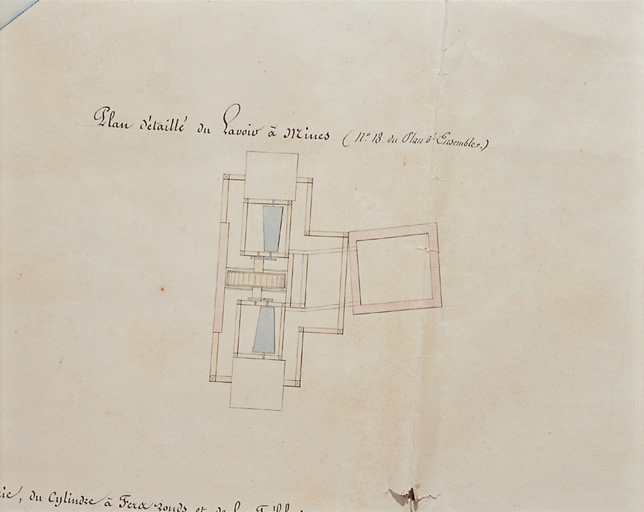 Plan détaillé du Lavoir à Mines (N.º 18 du Plan d'Ensemble.)
, du Cylindre à Fers ronds et de la